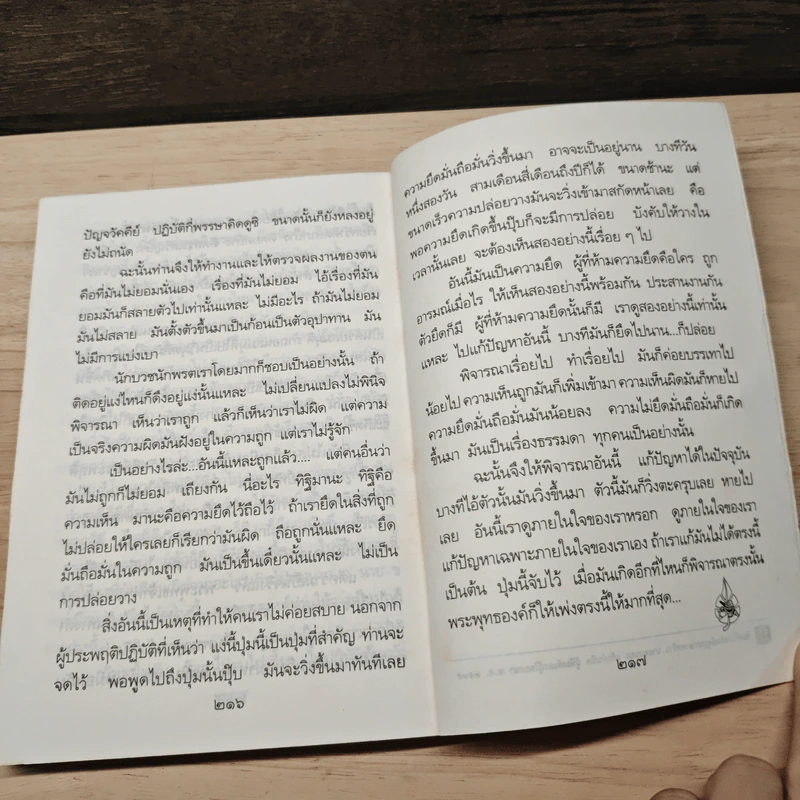 ปัญจวัคคีย์ ปฏิบัติกี่พรรษาคิดดูซิ ขนาดนั้นก็ยังหลงอยู่
ยังไม่ถนัด
ฉะนั้นท่านจึงให้ทำงานและให้ตรวจผลงานของตน
คือที่มันไม่ยอมนั่นเอง เรื่องที่มันไม่ยอม ไอ้เรื่องที่มัน
ยอมมันก็สลายตัวไปเท่านั้นแหละ ไม่มีอะไร ถ้ามันไม่ยอม
มันไม่สลาย มันตั้งตัวขึ้นมาเป็นก้อนเป็นตัวอุปาทาน มัน
ไม่มีการแบ่งเบา
นักบวชนักพรตเราโดยมากก็ชอบเป็นอย่างนั้น ถ้า
ติดอยู่แง่ไหนก็ดึงอยู่แง่งนั้นแหละ ไม่เปลี่ยนแปลงไม่พินิจ
พิจารณา เห็นว่าเราถูก แล้วก็เห็นว่าเราไม่ผิด แต่ความ
เป็นจริงความผิดมันฝังอยู่ในความถูก แต่เราไม่รู้จัก
เป็นอย่างไรล่ะ...อันนี้แหละถูกแล้ว.... แต่คนอื่นว่า
มันไม่ถูกก็ไม่ยอม เถียงกัน นี่อะไร ทิฐิมานะ ทิฐิคือ
ความเห็น มานะคือความยึดไว้ถือไว้ ถ้าเรายึดในสิ่งที่ถูก
ไม่ปล่อยให้ใครเลยก็เรียกว่ามันผิด ถือถูกนั่นแหละ ยึด
มั่นถือมั่นในความถูก มันเป็นขึ้นเดี๋ยวนั้นแหละ ไม่เป็น
การปล่อยวาง
สิ่งอันนี้เป็นเหตุที่ทำให้คนเราไม่ค่อยสบาย นอกจาก
ผู้ประพฤติปฏิบัติที่เห็นว่า แง่งนี้ปุ่มนี้เป็นปุ่มที่สำคัญ ท่านจะ
จดไว้ พอพูดไปถึงปุ่มนั้นปุ๊บ มันจะวิ่งขึ้นมาทันทีเลย
๒๑๖
ความยึดมั่นถือมั่นวิ่งขึ้นมา อาจจะเป็นอยู่นาน บางทีวัน
หนึ่งสองวัน สามเดือนสี่เดือนถึงปีก็ได้ ขนาดช้านะ แต่
ขนาดเร็วความปล่อยวางมันจะวิ่งเข้ามาสกัดหน้าเลย คือ
พอความยึดเกิดขึ้นปุ๊บก็จะมีการปล่อย บังคับให้วางใน
เวลานั้นเลย จะต้องเห็นสองอย่างนี้เรื่อย ๆ ไป
อันนี้มันเป็นความยึด ผู้ที่ห้ามความยึดคือใคร ถูก
อารมณ์เมื่อไร ให้เห็นสองอย่างนี้พร้อมกัน ประสานงานกัน
ตัวยึดก็มี ผู้ที่ห้ามความยึดนั้นก็มี เราดูสองอย่างนี้เท่านั้น
แหละ ไปแก้ปัญหาอันนี้ บางทีมันก็ยึดไปนาน...ก็ปล่อย
พิจารณาเรื่อยไป ทำเรื่อยไป มันก็ค่อยบรรเทาไป
น้อยไป ความเห็นถูกมันก็เพิ่มเข้ามา ความเห็นผิดมันก็หายไป
ความยึดมั่นถือมั่นมันน้อยลง ความไม่ยึดมั่นถือมั่นก็เกิด
ขึ้นมา มันเป็นเรื่องธรรมดา ทุกคนเป็นอย่างนั้น
ฉะนั้นจึงให้พิจารณาอันนี้ แก้ปัญหาได้ในปัจจุบัน
บางทีไอ้ตัวนั้นมันวิ่งขึ้นมา ตัวนี้มันก็วิ่งตะครุบเลย หายไป
เลย อันนี้เราดูภายในใจของเราหรอก ดูภายในใจของเรา
แก้ปัญหาเฉพาะภายในใจของเราเอง ถ้าเราแก้มันไม่ได้ตรงนี้
เป็นต้น ปุ่มนี้จับไว้ เมื่อมันเกิดอีกที่ไหนก็พิจารณาตรงนั้น
พระพุทธองค์ก็ให้เพ่งตรงนี้ให้มากที่สุด...
๒๑๗